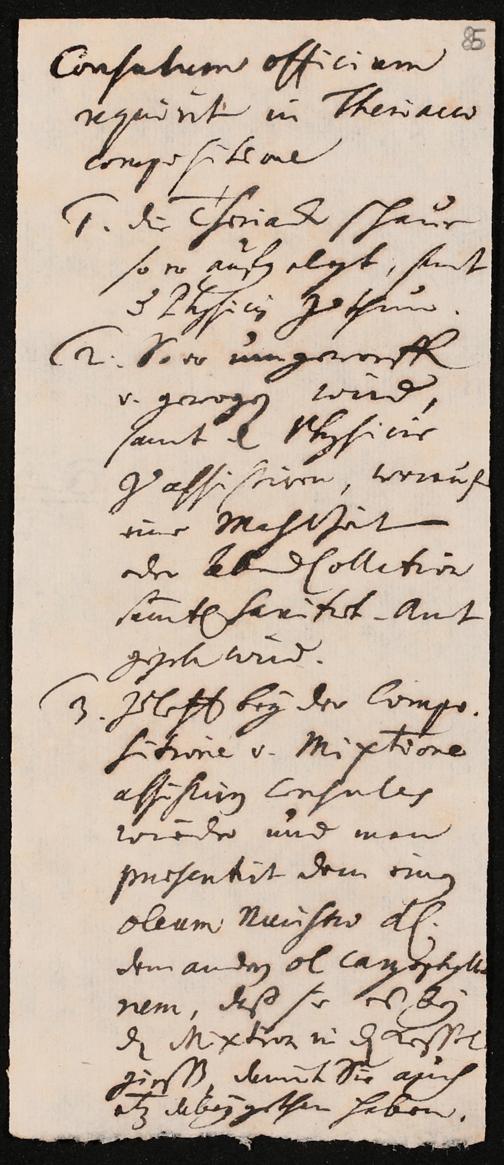 85
Consulum officium
requirit in Theriacae
compositione
1. die Theriack schaue
so er außgelegt, samt
3 Physicis zu thun.
2. So er umgeworffen
v. gewogen wird,
samt d. Physicis
zu assistiren, worauf
eine Mahlzeit
oder Abend Collation
samtl. Sanitet-Amt
wird.
3. bey der Compo-
sitione v. Mixtione
assistiren Consules
wieder und man
presentirt dem einen
oleum Nucistae
dem andern ol caryophyllo
rum, daß sie es bey
der Mixtion in den Kessel
gieß, damit Sie auch
etw. dabey gethan haben.